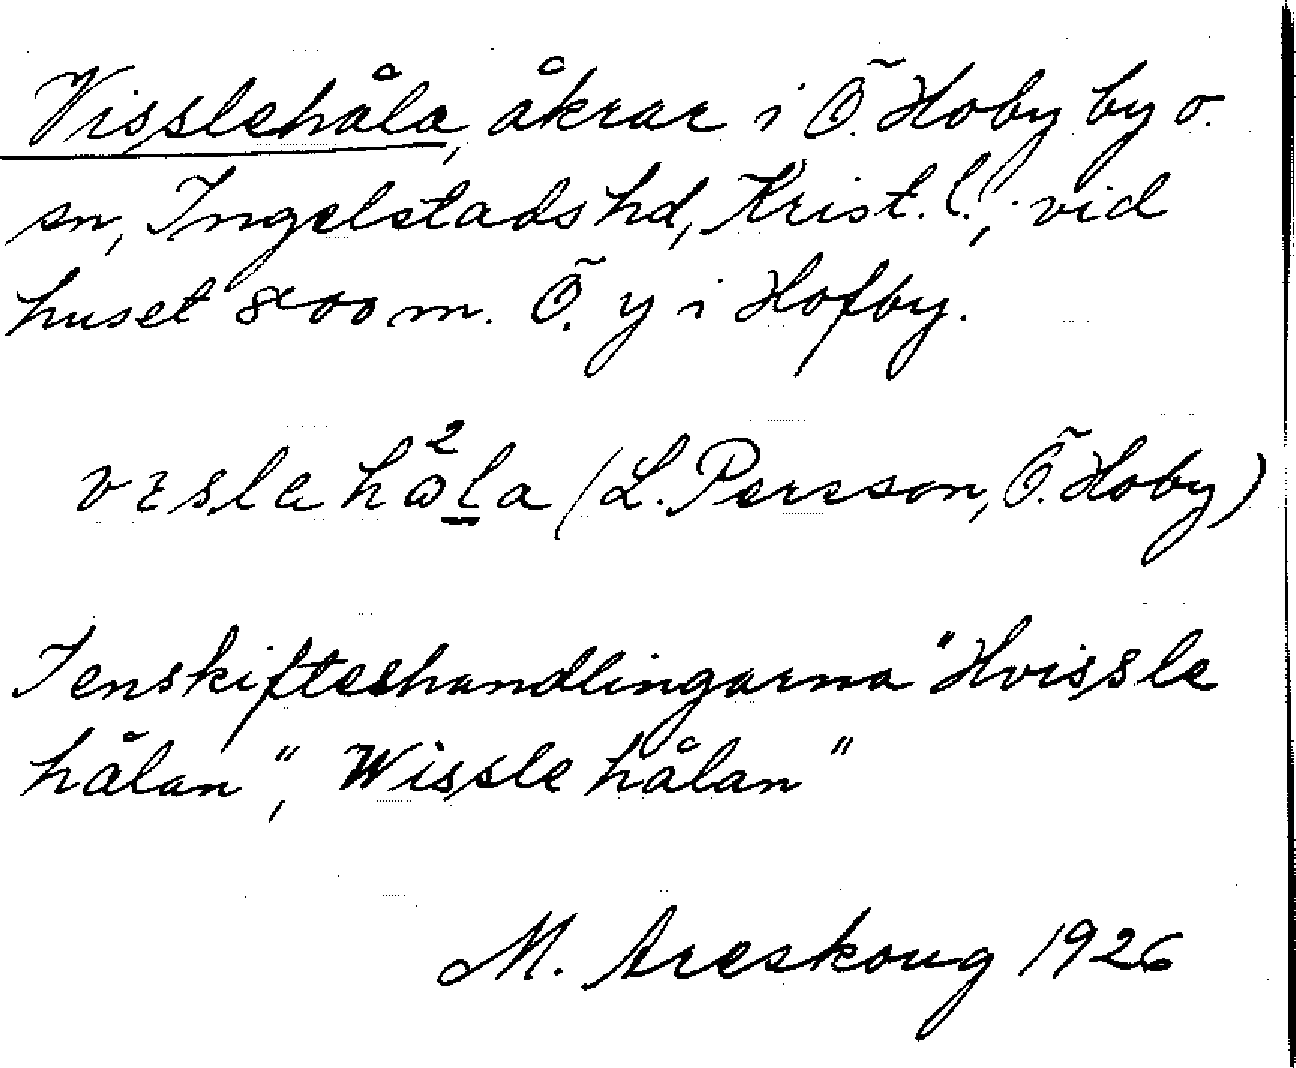 Visslehåla, åkrar i Ö. Hoby by o.
sn, Ingelstads hd, Krist. l., vid
huset 800 m. Ö. y i Hofby.
vɪsle hω²la (L. Persson, Ö. Hoby)
I enskifteshandlingarna "Hvissle
hålan", Wissle hålan"
M. Areskoug 1926